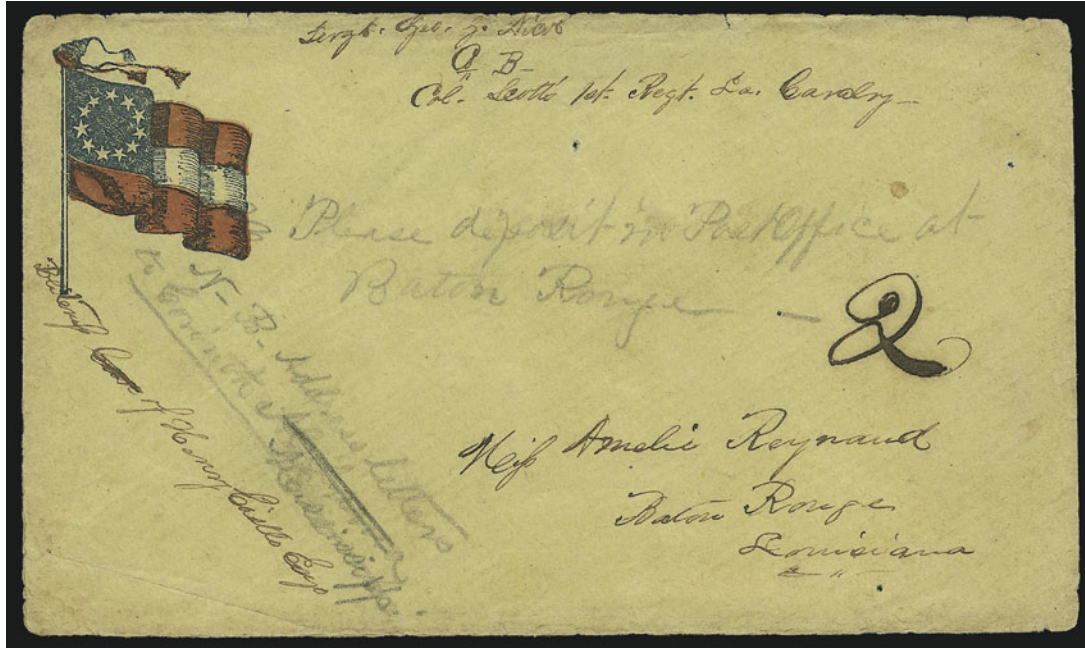 Sergt. Geo.
Co B
Col. Scott's 1st. Regt. La. Cavalry
Please deposit in Post Office at
Baton Rouge
2
N-B- Address letters
to Corinth
Mississippi
of Henry
Miss Amelie Reynaud
Baton Rouge
Louisiana